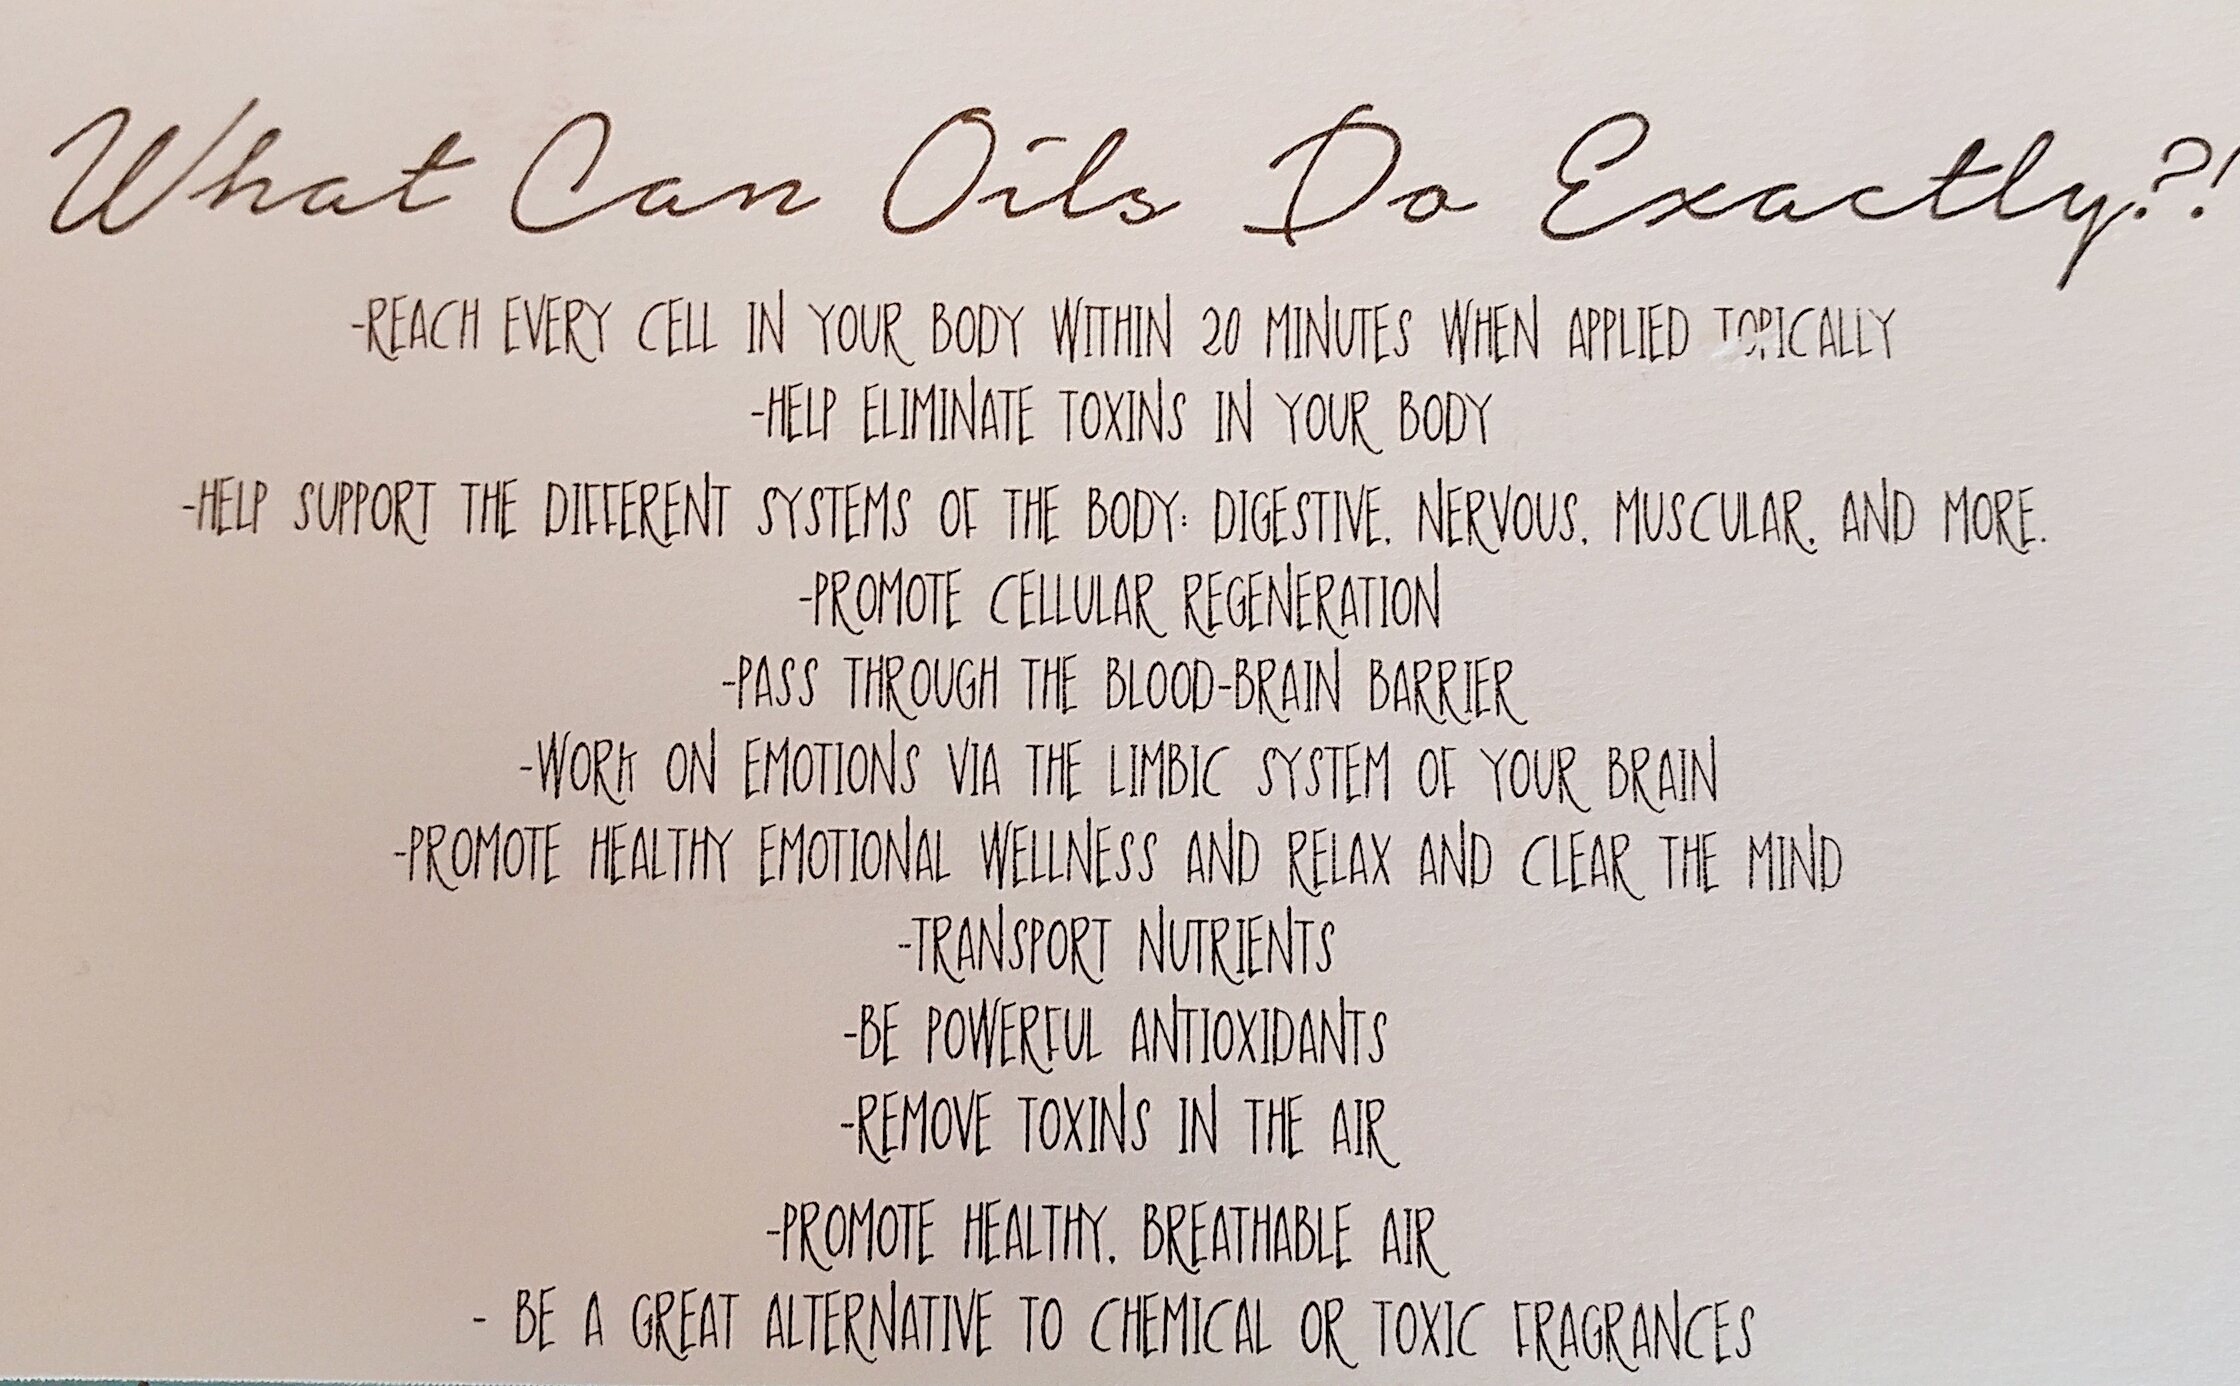 What Can Oils Do Exactly?!
-REACH EVERY CELL IN YOUR BODY WITHIN 20 MINUTES WHEN APPLIED TOPICALLY
-HELP ELIMINATE TOXINS IN YOUR BODY
-HELP SUPPORT THE DIFFERENT SYSTEMS OF THE BODY: DIGESTIVE, NERVOUS, MUSCULAR, AND MORE.
-PROMOTE CELLULAR REGENERATION
-PASS THROUGH THE BLOOD-BRAIN BARRIER
-WORK ON EMOTIONS VIA THE LIMBIC SYSTEM OF YOUR BRAIN
-PROMOTE HEALTHY EMOTIONAL WELLNESS AND RELAX AND CLEAR THE MIND
-TRANSPORT NUTRIENTS
-BE POWERFUL ANTIOXIDANTS
-REMOVE TOXINS IN THE AIR
-PROMOTE HEALTHY, BREATHABLE AIR
- BE A GREAT ALTERNATIVE TO CHEMICAL OR TOXIC FRAGRANCES